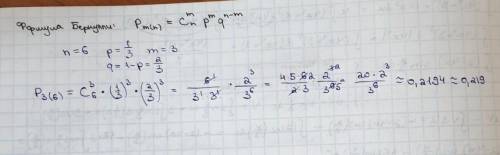 Формула Бернули: Pₘ₍ₙ₎ = Cₙᵐ pᵐ qⁿ⁻ᵐ
n=6 p=1/3 m=3
q=1-p=2/3
P₃₍₆₎ = C₆³ · (1/3)³ · (2/3)³ = 6!/(3! 3!) · 2³/3⁶ = = 20 · 2³/3⁶ ≈ 0,2194 ≈ 0,219